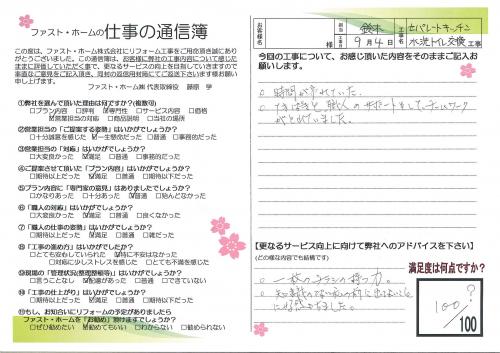 ファスト・ホームの仕事の通信簿
この度は、ファスト・ホーム株式会社にリフォーム工事をご用命頂き誠にあり
がとうございました。この通信簿は、お客様に弊社の工事内容について感じた
ままに評価していただく事で、更なるサービスの向上を目指していきますので
率直なご意見をご記入頂き、同封の返信用封筒にてご返送下さいます様お願い
申し上げます。
ファスト・ホーム㈱ 代表取締役 藤原 亨
①弊社を選んで頂いた理由は何ですか?(複数可)
□プラン内容 □評判 ☑専門性 □サービス内容 □価格
☑営業担当の対応 □商品説明 □当社の場所
②営業担当の「ご提案する姿勢」はいかがでしょうか?
□十分誠意を感じた ☑一生懸命だった □普通 □事務的だった
③営業担当の「対応」はいかがでしょうか?
□大変良かった ☑満足 □普通 □事務的だった
④ご提案させて頂いた「プラン内容」はいかがでしたか?
□期待以上だった ☑満足 □普通 □期待以下だった
⑤プラン内容に「専門家の意見」はありましたでしょうか?
□かなりあった □十分あった ☑普通 □殆んどなかった
⑥「職人の対応」はいかがでしょうか?
□大変良かった ☑満足 □普通 □良くなかった
⑦「職人の仕事の姿勢」はいかがでしょうか?
□期待以上だった ☑満足 □普通 □雑だった
⑧「工事の進め方」はいかがでしたか?
□とても安心していられた ☑特に不安はなかった
□対応に少しストレスを感じた □とても不満を感じた
⑨現場の「管理状況(整理整頓等)」はいかがでしたか?
□言うことなし ☑配慮があった □普通 □できていなかった
⑩「工事の仕上がり」はいかがでしたか?
□期待以上だった ☑満足 □普通 □期待以下だった
⑪もし、お知合いにリフォームの予定がありましたら
ファスト・ホームを「お勧め」頂けますでしょうか?
□ぜひ勧めたい ☑勧めてもいい □わからない □勧められない
お客様名 様
担当 鈴木
9月4日
工事名 セパレートキッチン
水洗トイレ交換 工事
今回の工事について、お感じ頂いた内容をそのままご記入お
願いします。
○ 時間が守れていた。
チームワーク
がとれていました。
【更なるサービス向上に向けて弊社へのアドバイスを下さい】
(どの様な内容でも結構です)
○ 一枚のチラシの持つ力。
満足度は何点ですか?
100?
100